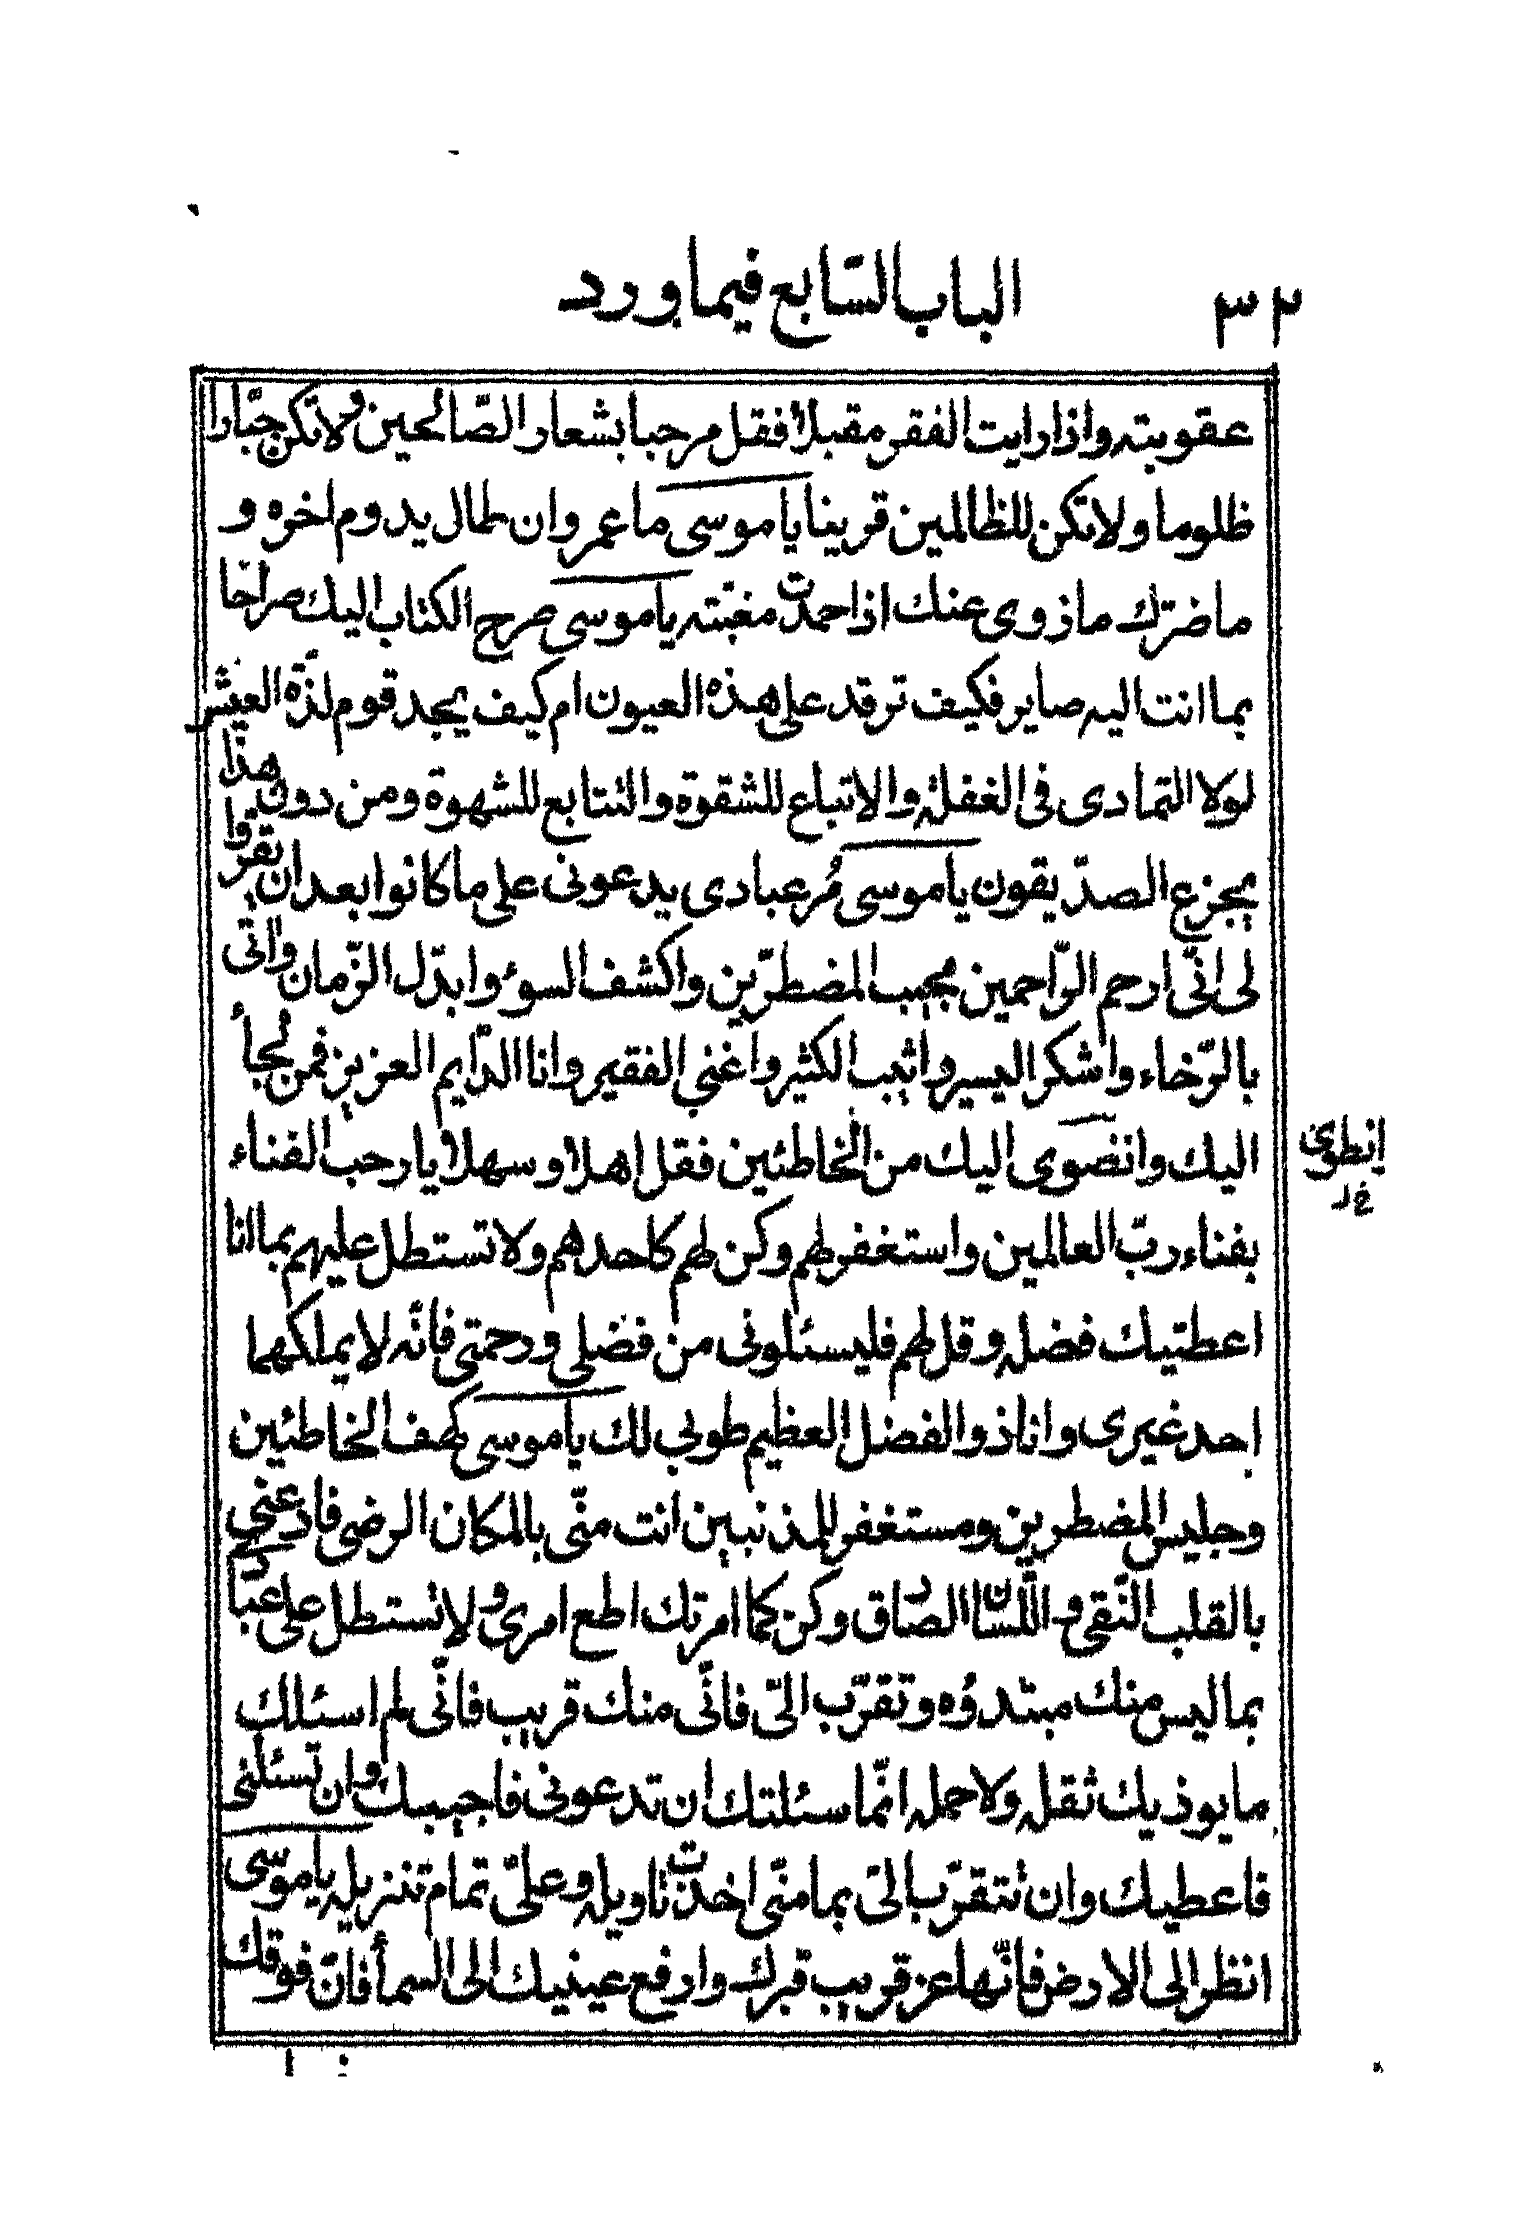 ٣٢ الباب السّابع فيما ورد
عقوبته واذا رايت الفقر مقبلا فقل مرحبا بشعار الصّالحين ولا تكن جبّارا
ظلوما ولا تكن للظالمين قرينا يا موسى ما عمر وان طال يدوم اخره و
ما ضرّك ما زوى عنك اذا حمدت مغبّته يا موسى صرح الكتاب اليك صراخا
بما انت اليه صاير فكيف ترقد على هذه العيون ام كيف يجد قوم لذّة العيش
لولا التمادى فى الغفلة والاتباع للشقوة والتتابع للشهوة ومن دون هذا
يجزع الصدّيقون يا موسى مُر عبادى يدعونى على ما كانوا بعد ان يقرّوا
لى انّى ارحم الرّاحمين مجيب المضطرّين واكشف السوء وابدّل الزّمان واتى
بالرّخاء واشكر اليسير واثيب الكثير واغنى الفقير وانا الدّايم العزيز فمن لجأ
اليك وانضوى اليك من الخاطئين فقل اهلا وسهلا يا رحب الفناء
انطوى
خ ل
بفناء ربّ العالمين واستغفر لهم وكن لهم كاحدهم ولا تستطل عليهم بما انا
اعطتيك فضله وقل لهم فليسئلونى من فضلى ورحمتى فانّه لا يملكهما
احد غيرى وانا ذو الفضل العظيم طوبى لك يا موسى كهف الخاطئين
وجليس المضطرين ومستغفر للمذنبين انت منّى بالمكان الرضى فادعنى
بالقلب النّقى واللّسان الصّادق وكن كما امرتك اطع امرى ولا تستطل على عبادى
بما ليس منك مبتدؤه وتقرّب الىّ فانّى منك قريب فانّى لم اسئلك
ما يوذيك ثقله ولا حمله انّما سئلتك ان تدعونى فاجيبك وان تسئلنى
فاعطيك وان تتقرّب الىّ بما منّى اخذت تاويله وعلىّ تمام تنزيله يا موسى
انظر الى الارض فانّها عن قريب قبرك وارفع عينيك الى السمأ فانّ فوقك